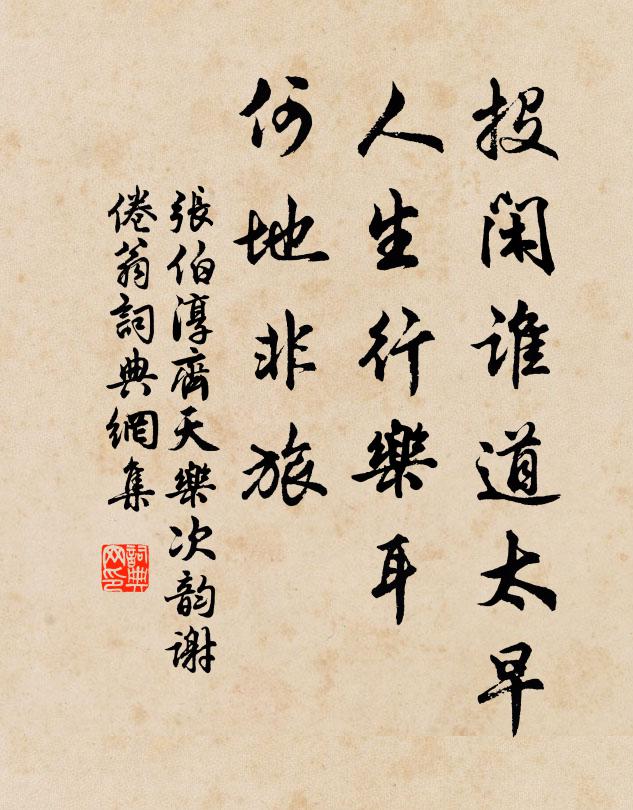 投闲谁道太早
人生行樂耳
何地非旅
張伯淳齊天樂次韵谢
倦翁詞典網集
詞典
网印